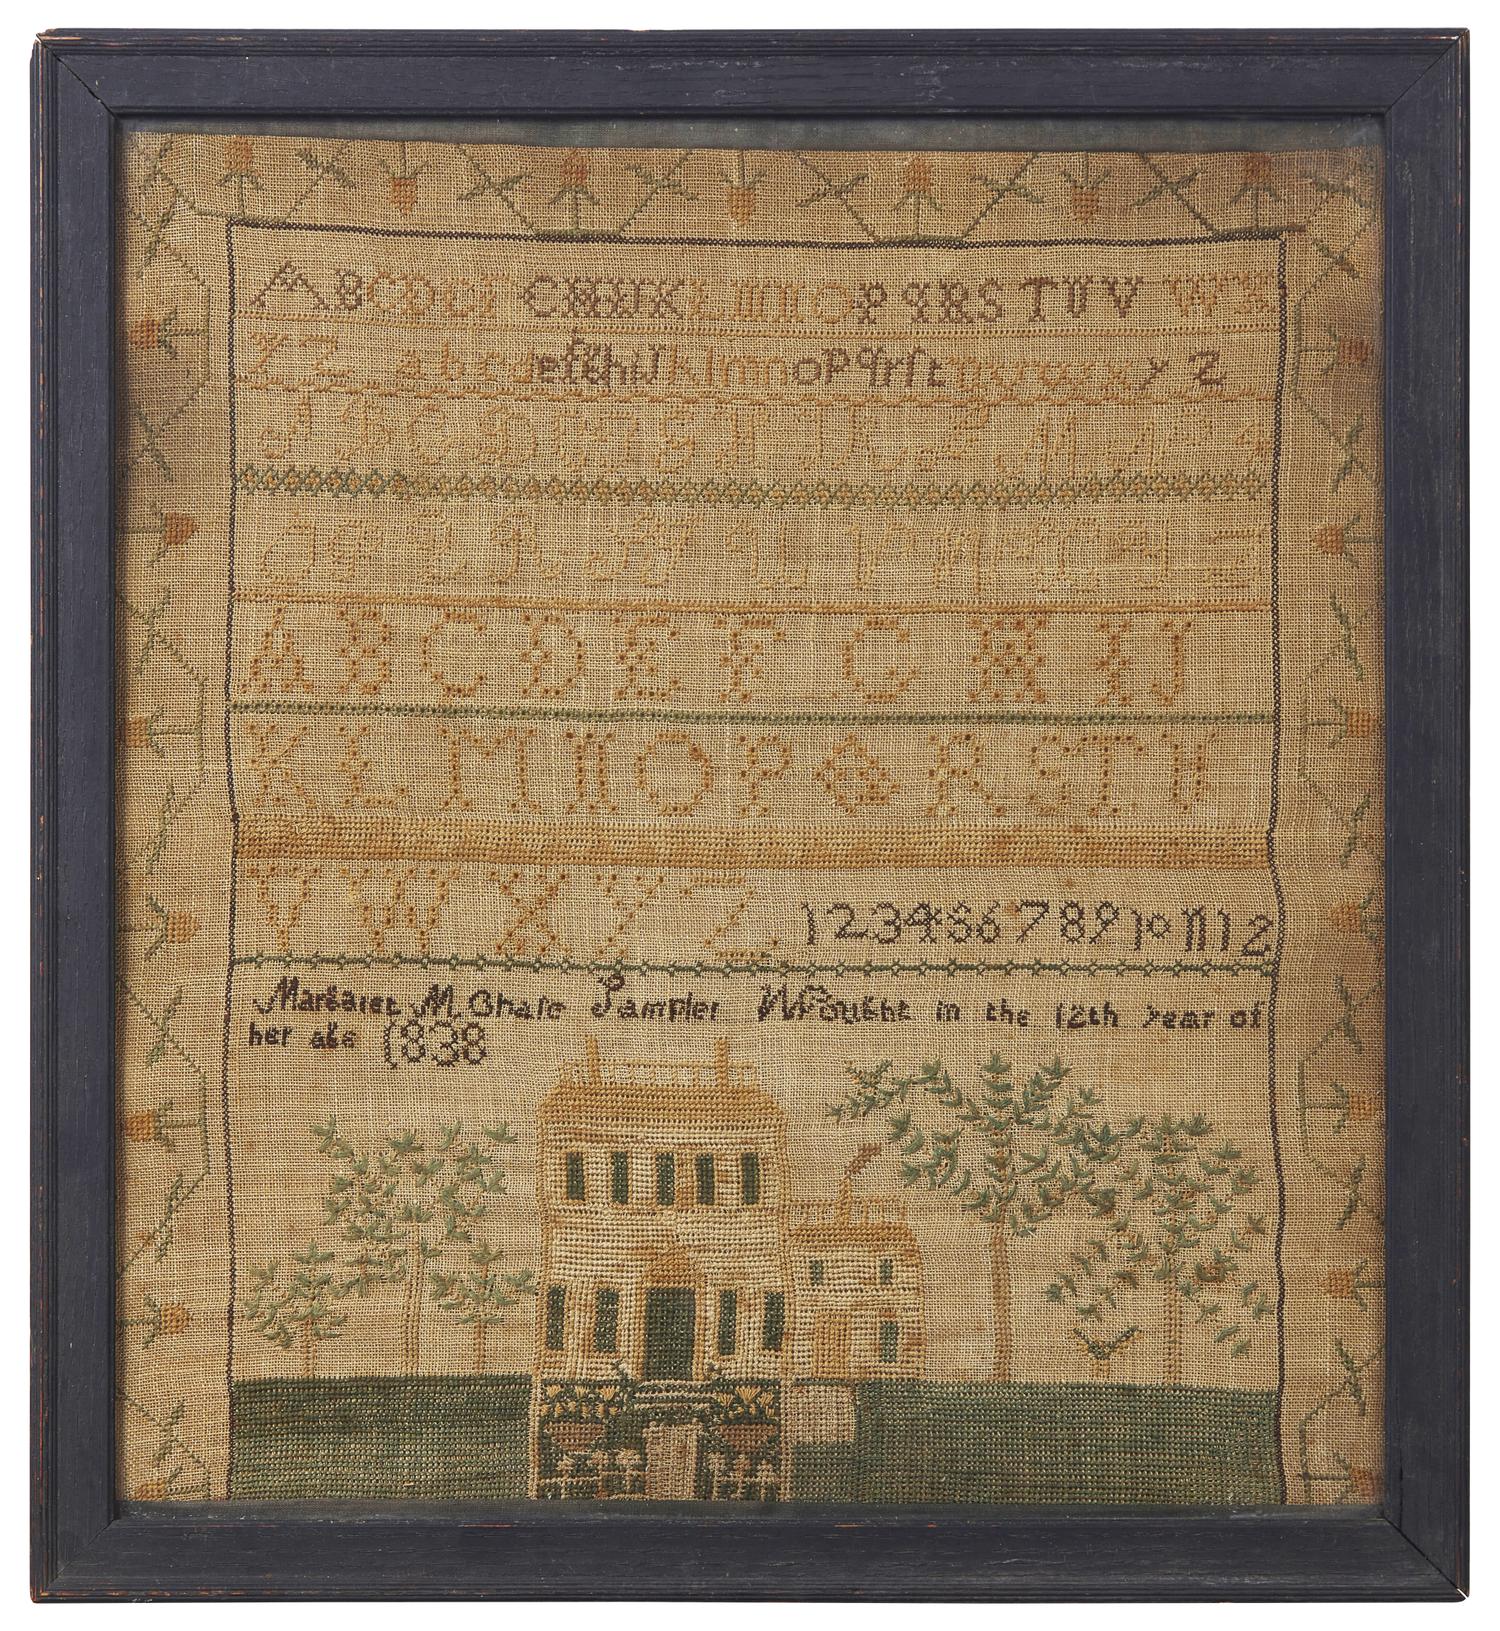 A B C D E F G H I J K L M N O P Q R S T U V W X
Y Z a b c d e f g h i j k l m n o p q r s t u v w x y z
A B C D E F G H I K L M N P
O P Q R S T U V W X Y Z
A B C D E F G H I J
K L M N O P Q R S T U
V W X Y Z 1 2 3 4 5 6 7 8 9 10 11 12
Margaret M. Sampler Wrought in the 12th year of
her age 1838